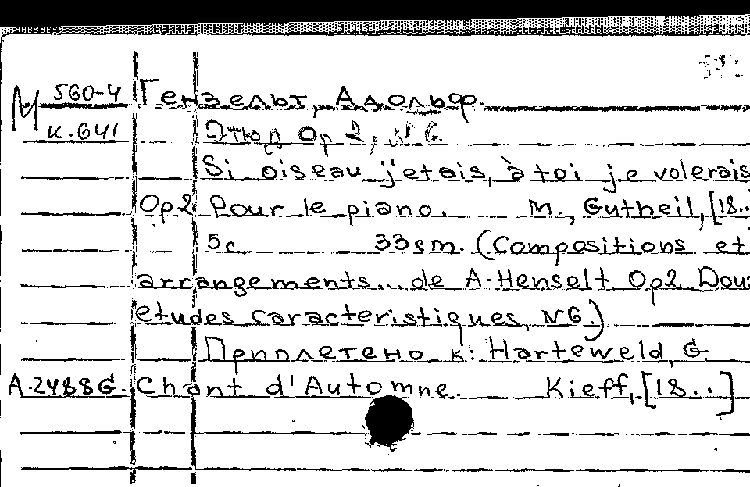 М 560-4 Гензельт, Адольф.
к.641 Этюд Op 2, №6
Si oiseau j'etais, à toi je volerais
Op2 Pour le piano. M., Gutheil, [18..
5c 33sm. (Compositions et
arrangements... de A. Henselt Op2 Dou
etudes caracteristiques, N6.)
Приплетено к: Harteweld, G.
A-2488G. Chant d'Automne. Kieff, [18..]